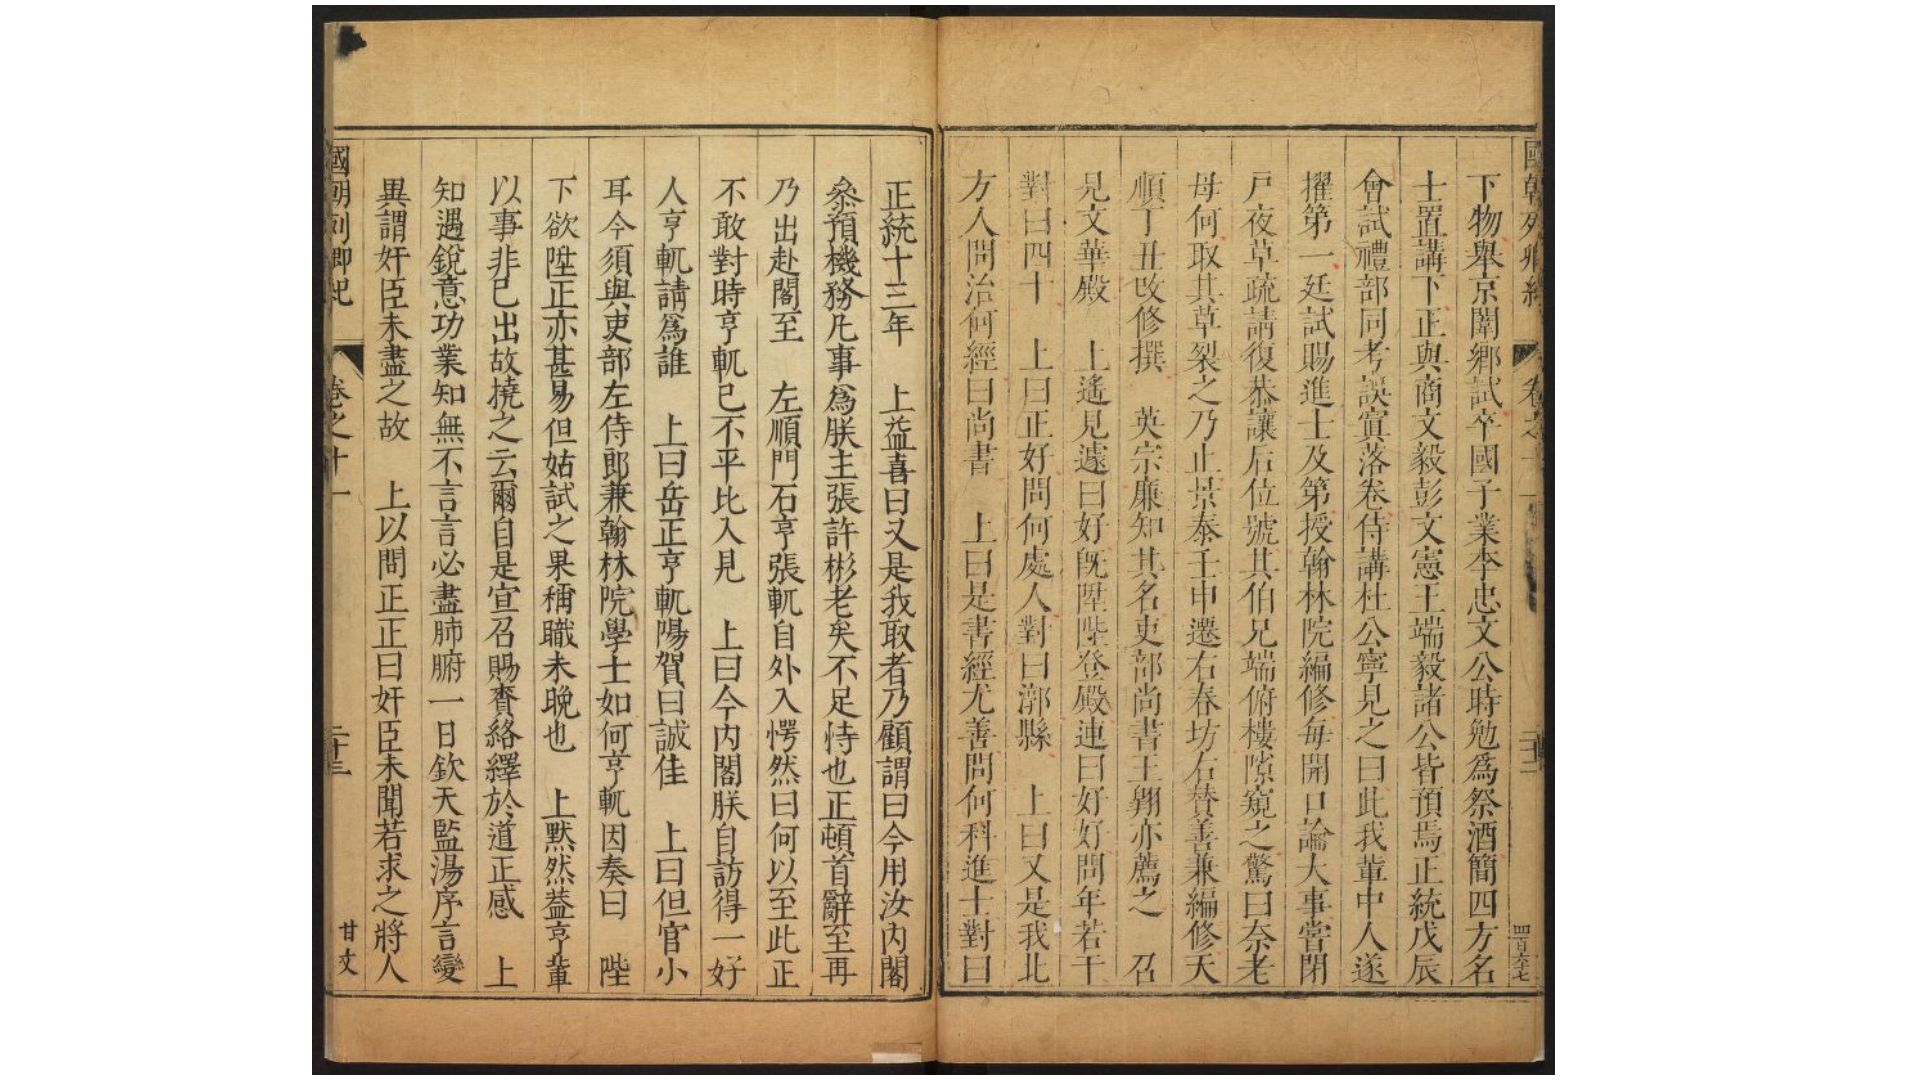 國朝列卿紀
卷之十一
二十二
四百六七
下物舉京闈鄉試卒國子業李忠文公時勉爲祭酒簡四方名
士置講下正與商文毅彭文憲王端毅諸公皆預焉正統戊辰
會試禮部同考誤寘落卷侍講杜公寧見之曰此我軰中人遂
擢第一廷試賜進士及第授翰林院編修每開口論大事嘗閉
戸夜草疏請復恭讓后位號其伯兄端俯樓隙窺之驚曰奈老
母何取其草裂之乃止景泰壬申遷右春坊右賛善兼編修天
順丁丑改修撰　英宗廉知其名吏部尚書王翺亦薦之　召
見文華殿　上遙見遽曰好旣陞陛登殿連曰好好問年若干
對曰四十　上曰正好問何處人對曰漷縣　上曰又是我北
方人問治何經曰尚書　上曰是書經尤善問何科進士對曰
正統十三年　上益喜曰又是我取者乃顧謂曰今用汝內閣
叅預機務凡事爲朕主張許彬老矣不足恃也正頓首辭至再
乃出赴閣至　左順門石亨張軏自外入愕然曰何以至此正
不敢對時亨軏已不平比入見　上曰今內閣朕自訪得一好
人亨軏請爲誰　上曰岳正亨軏陽賀曰誠佳　上曰但官小
耳今須與吏部左侍郎兼翰林院學士如何亨軏因奏曰　陛
下欲陞正亦甚易但姑試之果稱職未晚也　上黙然葢亨軰
以事非己出故撓之云爾自是宣召賜賚絡繹於道正感　上
知遇銳意功業知無不言言必盡肺腑一日欽天監湯序言變
異謂奸臣未盡之故　上以問正正曰奸臣未聞若求之將人
國朝列卿紀
卷之十一
二十二
甘文